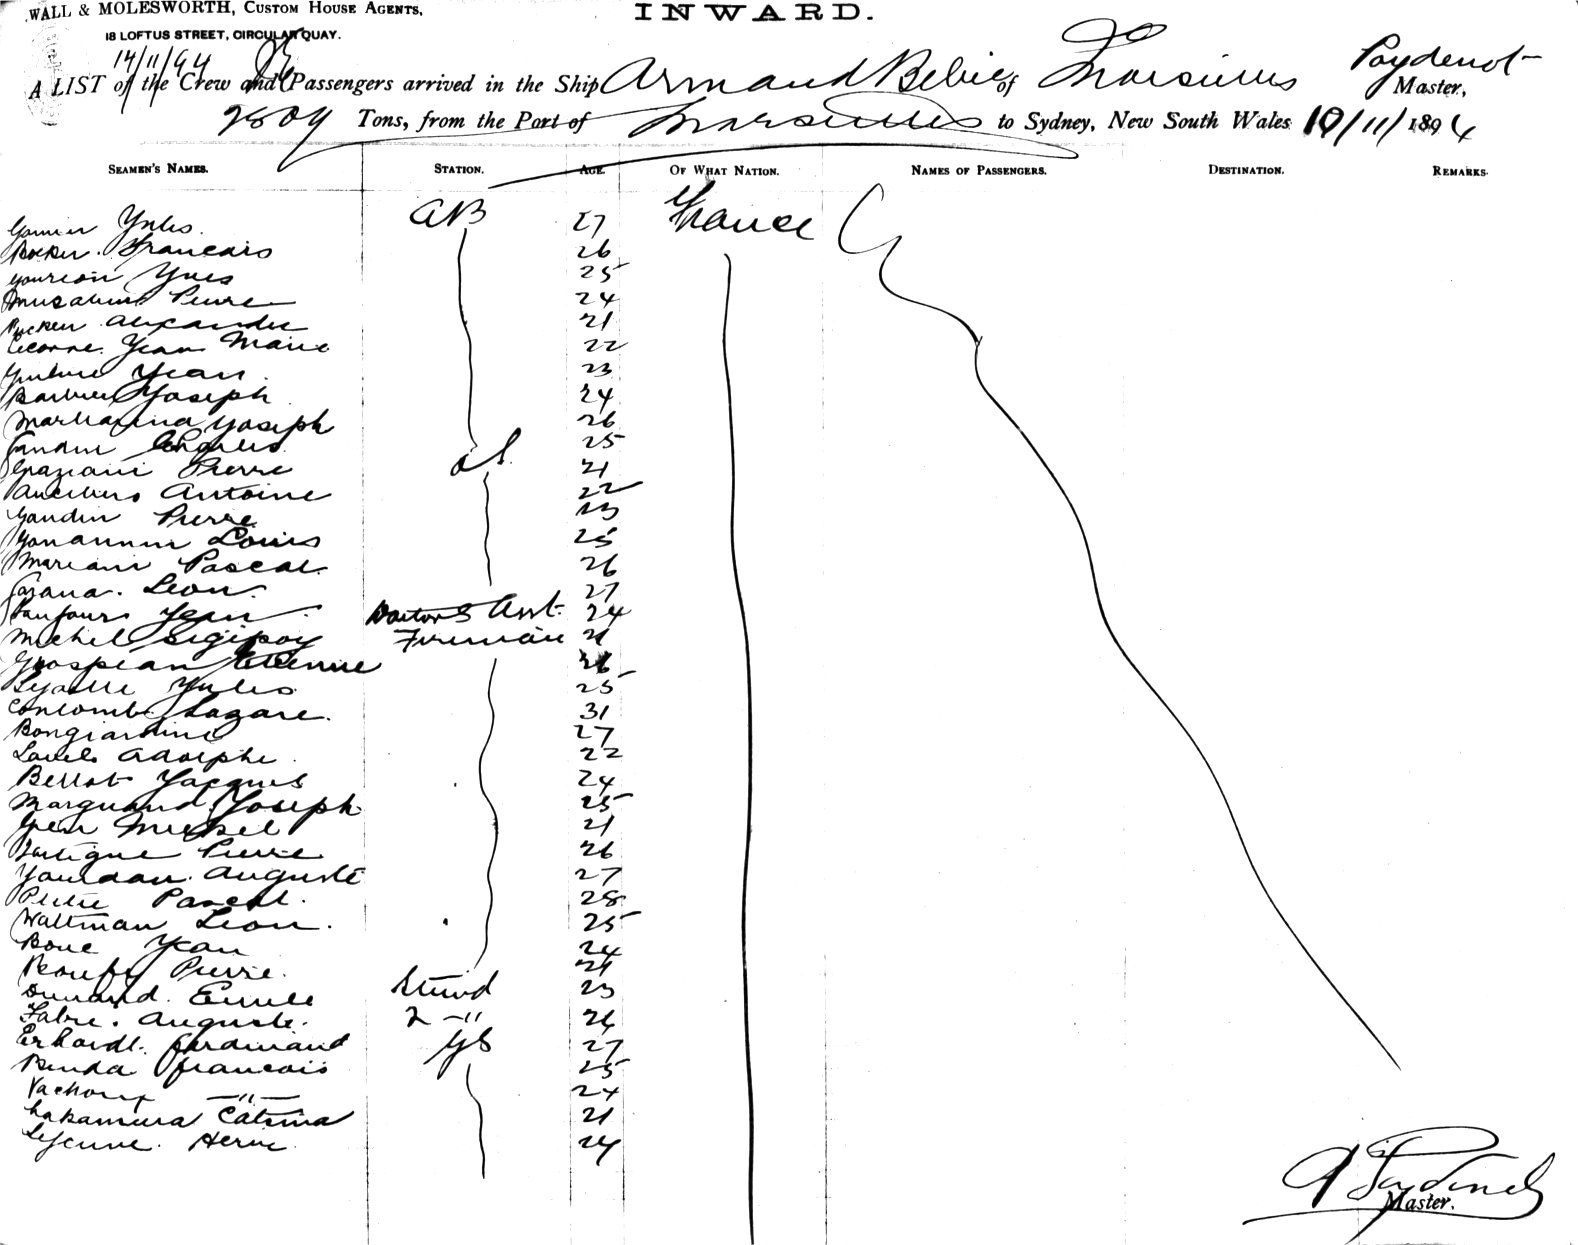 WALL & MOLESWORTH, CUSTOM HOUSE AGENTS,
18 LOFTUS STREET, CIRCULAR QUAY.
INWARD.
14/11/94
A LIST of the Crew and Passengers arrived in the Ship Armand Behic of Marseilles Poydenot Master,
2804 Tons, from the Port of Marseilles to Sydney, New South Wales 10/11/1894
SEAMEN'S NAMES. STATION. AGE. OF WHAT NATION. NAMES OF PASSENGERS. DESTINATION. REMARKS.
Yules AB 27 France
Francois 26
Yves 25
Pierre 24
Alexandre 21
Yean Marie 22
Yean 23
Barbier Yoseph 24
Yoseph 26
Charles 25
Graziani Pierre OS 21
Antoine 22
Gaudin Pierre 23
Louis 25
Mariani Pascal 26
Leon 27
Yean Doctors Asst 24
Michel Fireman 21
Grospean Etienne 26
Yules 25
Coulomb Lazare 31
Bongiardini 27
Adolphe 22
Bellot Yacques 24
Marquand Yoseph 25
Michel 21
Lartigue Pierre 26
Yourdan Auguste 27
Pascal 28
Waltman Leon 25
Boue Yean 24
Pierre 24
Durand Emile Stewd 23
Fabre Auguste 2 -"- 26
Erhardt ferdinand GS 27
Benda francois 25
Vachoux -"- 24
Nakamura Catsma 21
Lejeune Herve 24
A Poydenot
Master.